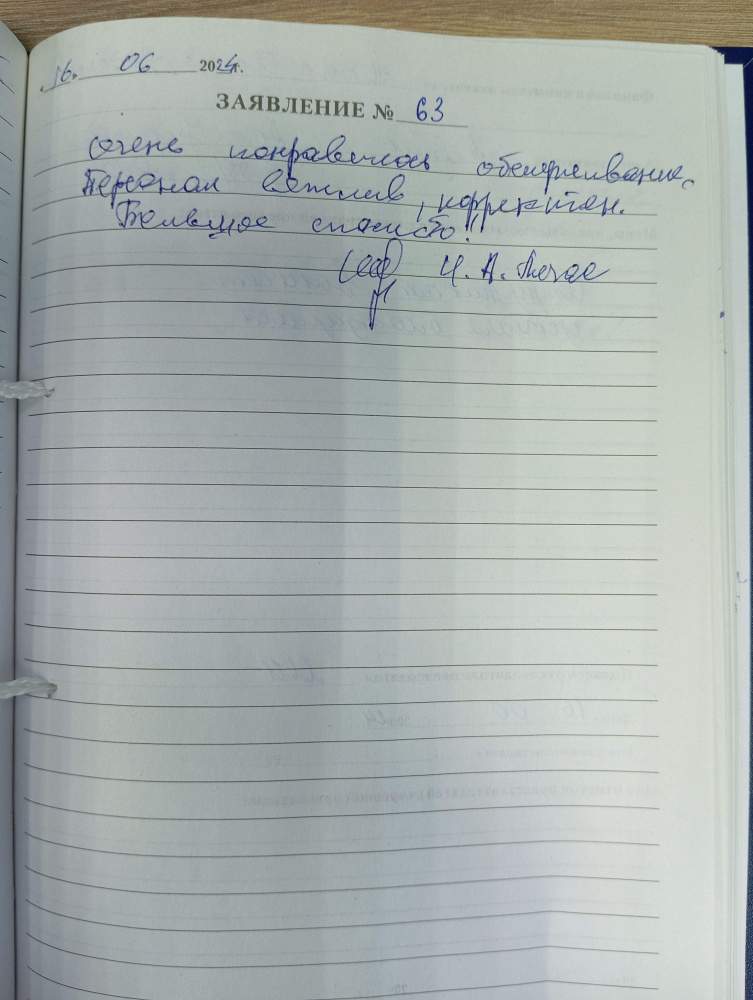 16. 06 2024г.
ЗАЯВЛЕНИЕ № 63
Очень понравилось обслуживание.
Персонал вежлив, корректен.
Большое спасибо!
Ч. А.